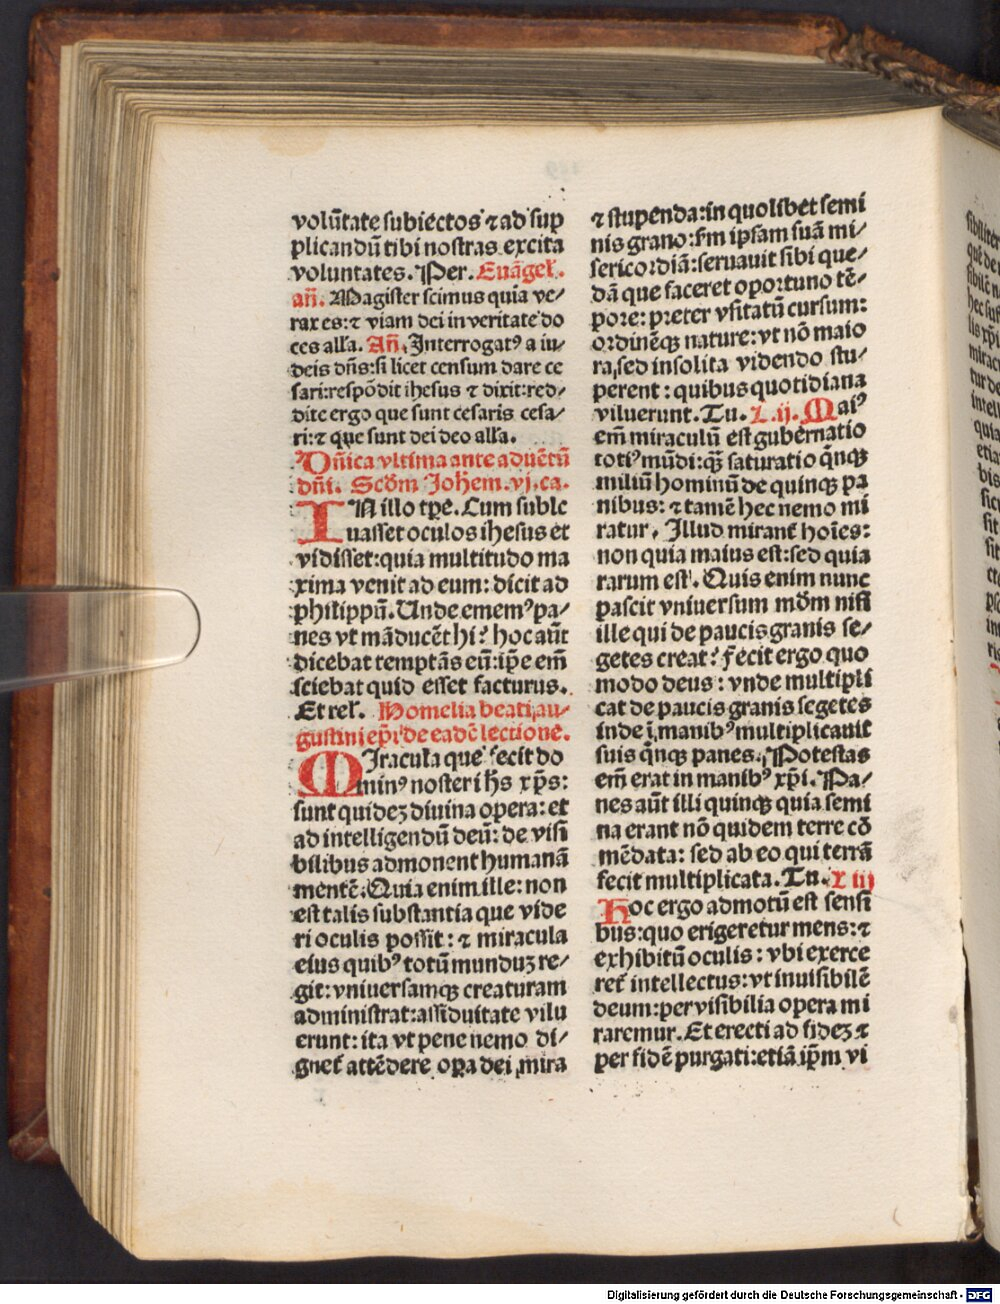 volūtate subiectos ⁊ ad sup
plicandū tibi nostras excita
voluntates. Per. Euāgel.
an̄. Magister scimus quia ve⸗
raxes: ⁊ viam dei in veritate do
ces alľa. An̄. Interrogatꝰ a iu⸗
deis dn̄s: si licet censum dare ce
sari: respōdit ihesus ⁊ dixit: red⸗
dite ergo que sunt cesaris cesa⸗
ri: ⁊ que sunt dei deo alľa.
Dn̄ica vltima ante aduētū
dn̄i. Scďm Johem. vj. ca.
IN illo tpe. Cum suble
uasset oculos ihesus et
vidisset: quia multitudo ma
xima venit ad eum: dicit ad
philippū. Unde ememꝰ pa⸗
nes vt māducēt hi? hoc aūt
dicebat temptās eū: ip̄e em̄
sciebat quid esset facturus.
Et rel. Homelia beati au⸗
gustini ep̄i de eadē lectione.
MIracula que fecit do
minꝰ noster ihs xp̄s:
sunt quidez diuina opera: et
ad intelligendū deū: de visi
bilibus admonent humanā
mentē. Quia enim ille: non
est talis substantia que vide
ri oculis possit: ⁊ miracula
eius quibꝰ totū munduz re⸗
git: vniuersamqꝫ creaturam
administrat: assiduitate vilu
erunt: ita vt pene nemo di⸗
gnet᷑ attēdere oꝑa dei mira
⁊ stupenda: in quolibet semi
nis grano: s̄m ipsam suā mi⸗
sericordiā: seruauit sibi que⸗
dā que faceret oportuno tē⸗
pore: preter vsitatū cursum:
ordinēqꝫ nature: vt nō maio
ra, sed insolita videndo stu⸗
perent: quibus quotidiana
viluerunt. Tu. L. ij. Maiꝰ
em̄ miraculū est gubernatio
totiꝰ mūdi: qꝫ̄ saturatio qͥnqꝫ
miliū hominū de quinqꝫ pa
nibus: ⁊ tamē hec nemo mi
ratur. Illud mirant᷑ hoīes:
non quia maius est: sed quia
rarum est. Quis enim nunc
pascit vniuersum mōm nisi
ille qui de paucis granis se⸗
getes creat? fecit ergo quo
modo deus: vnde multipli
cat de paucis granis segetes
inde ī manibꝰ multiplicauit
suis qͥnqꝫ panes. Potestas
em̄ erat in manibꝰ xp̄i. Pa⸗
nes aūt illi quinqꝫ quia semi
na erant nō quidem terre cō
mēdata: sed ab eo qui terrā
fecit multiplicata. Tu. L iij
Hoc ergo admotū est sensi
bus: quo erigeretur mens: ⁊
exhibitū oculis: vbi exerce
ret᷑ intellectus: vt inuisibilē
deum: per visibilia opera mi
raremur. Et erecti ad fidez ⁊
per fidē purgati: etiā ip̄m vi
Digitalisierung gefördert durch die Deutsche Forschungsgemeinschaft - DFG